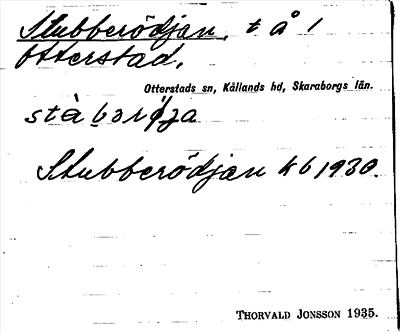 Stubberödjan, t å 1
Otterstad.
Otterstads sn, Kållands hd, Skaraborgs län.
Stubberödjan kb 1930.
THORVALD JONSSON 1935.